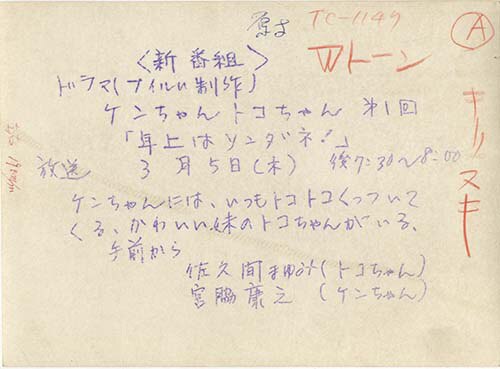 TC-1149
Ⓐ
Wトーン
〈新番組〉
ドラマ(フイルム制作)
ケンちゃんトコちゃん 第1回
「年上はソンダネ!」
放送 3月5日(木) 後7:30~8:00
ケンちゃんには、いつもトコトコくっついて
くる、かわいい妹のトコちゃんがいる、
午前から
佐久間まゆみ(トコちゃん)
宮脇康之(ケンちゃん)
キリヌキ